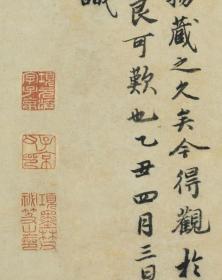 物藏之久矣今得觀於
良可歎也乙丑四月三日
識
子京父印